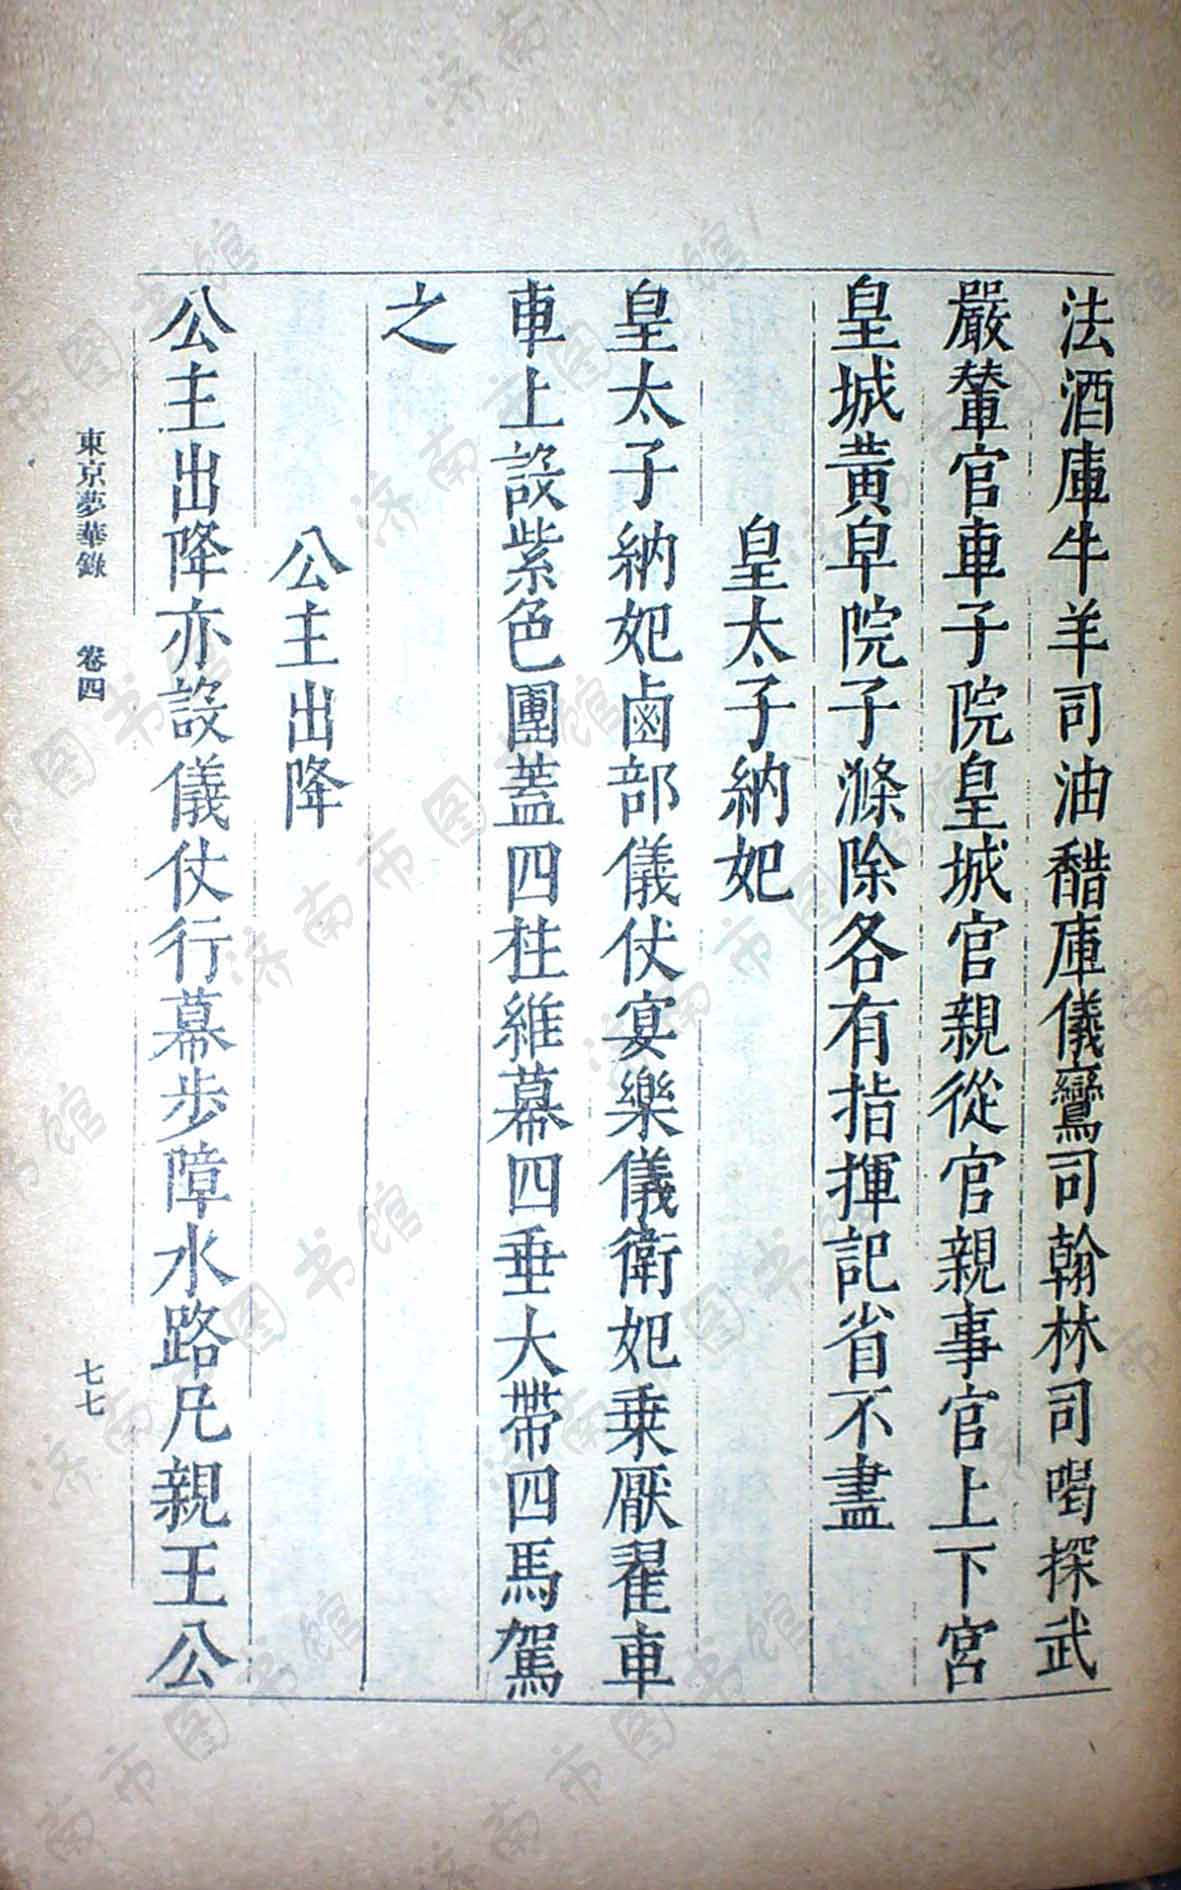 法酒庫牛羊司油醋庫儀鸞司翰林司喝探武
嚴輦官車子院皇城官親從官親事官上下宮
皇城黃皁院子滌除各有指揮記省不盡
皇太子納妃
皇太子納妃鹵部儀仗宴樂儀衛妃乗厭翟車
車上設紫色團蓋四柱維幕四垂大帶四馬駕
之
公主出降
公主出降亦設儀仗行幕步障水路凡親王公
東京夢華錄 卷四
七七
济南市图书馆